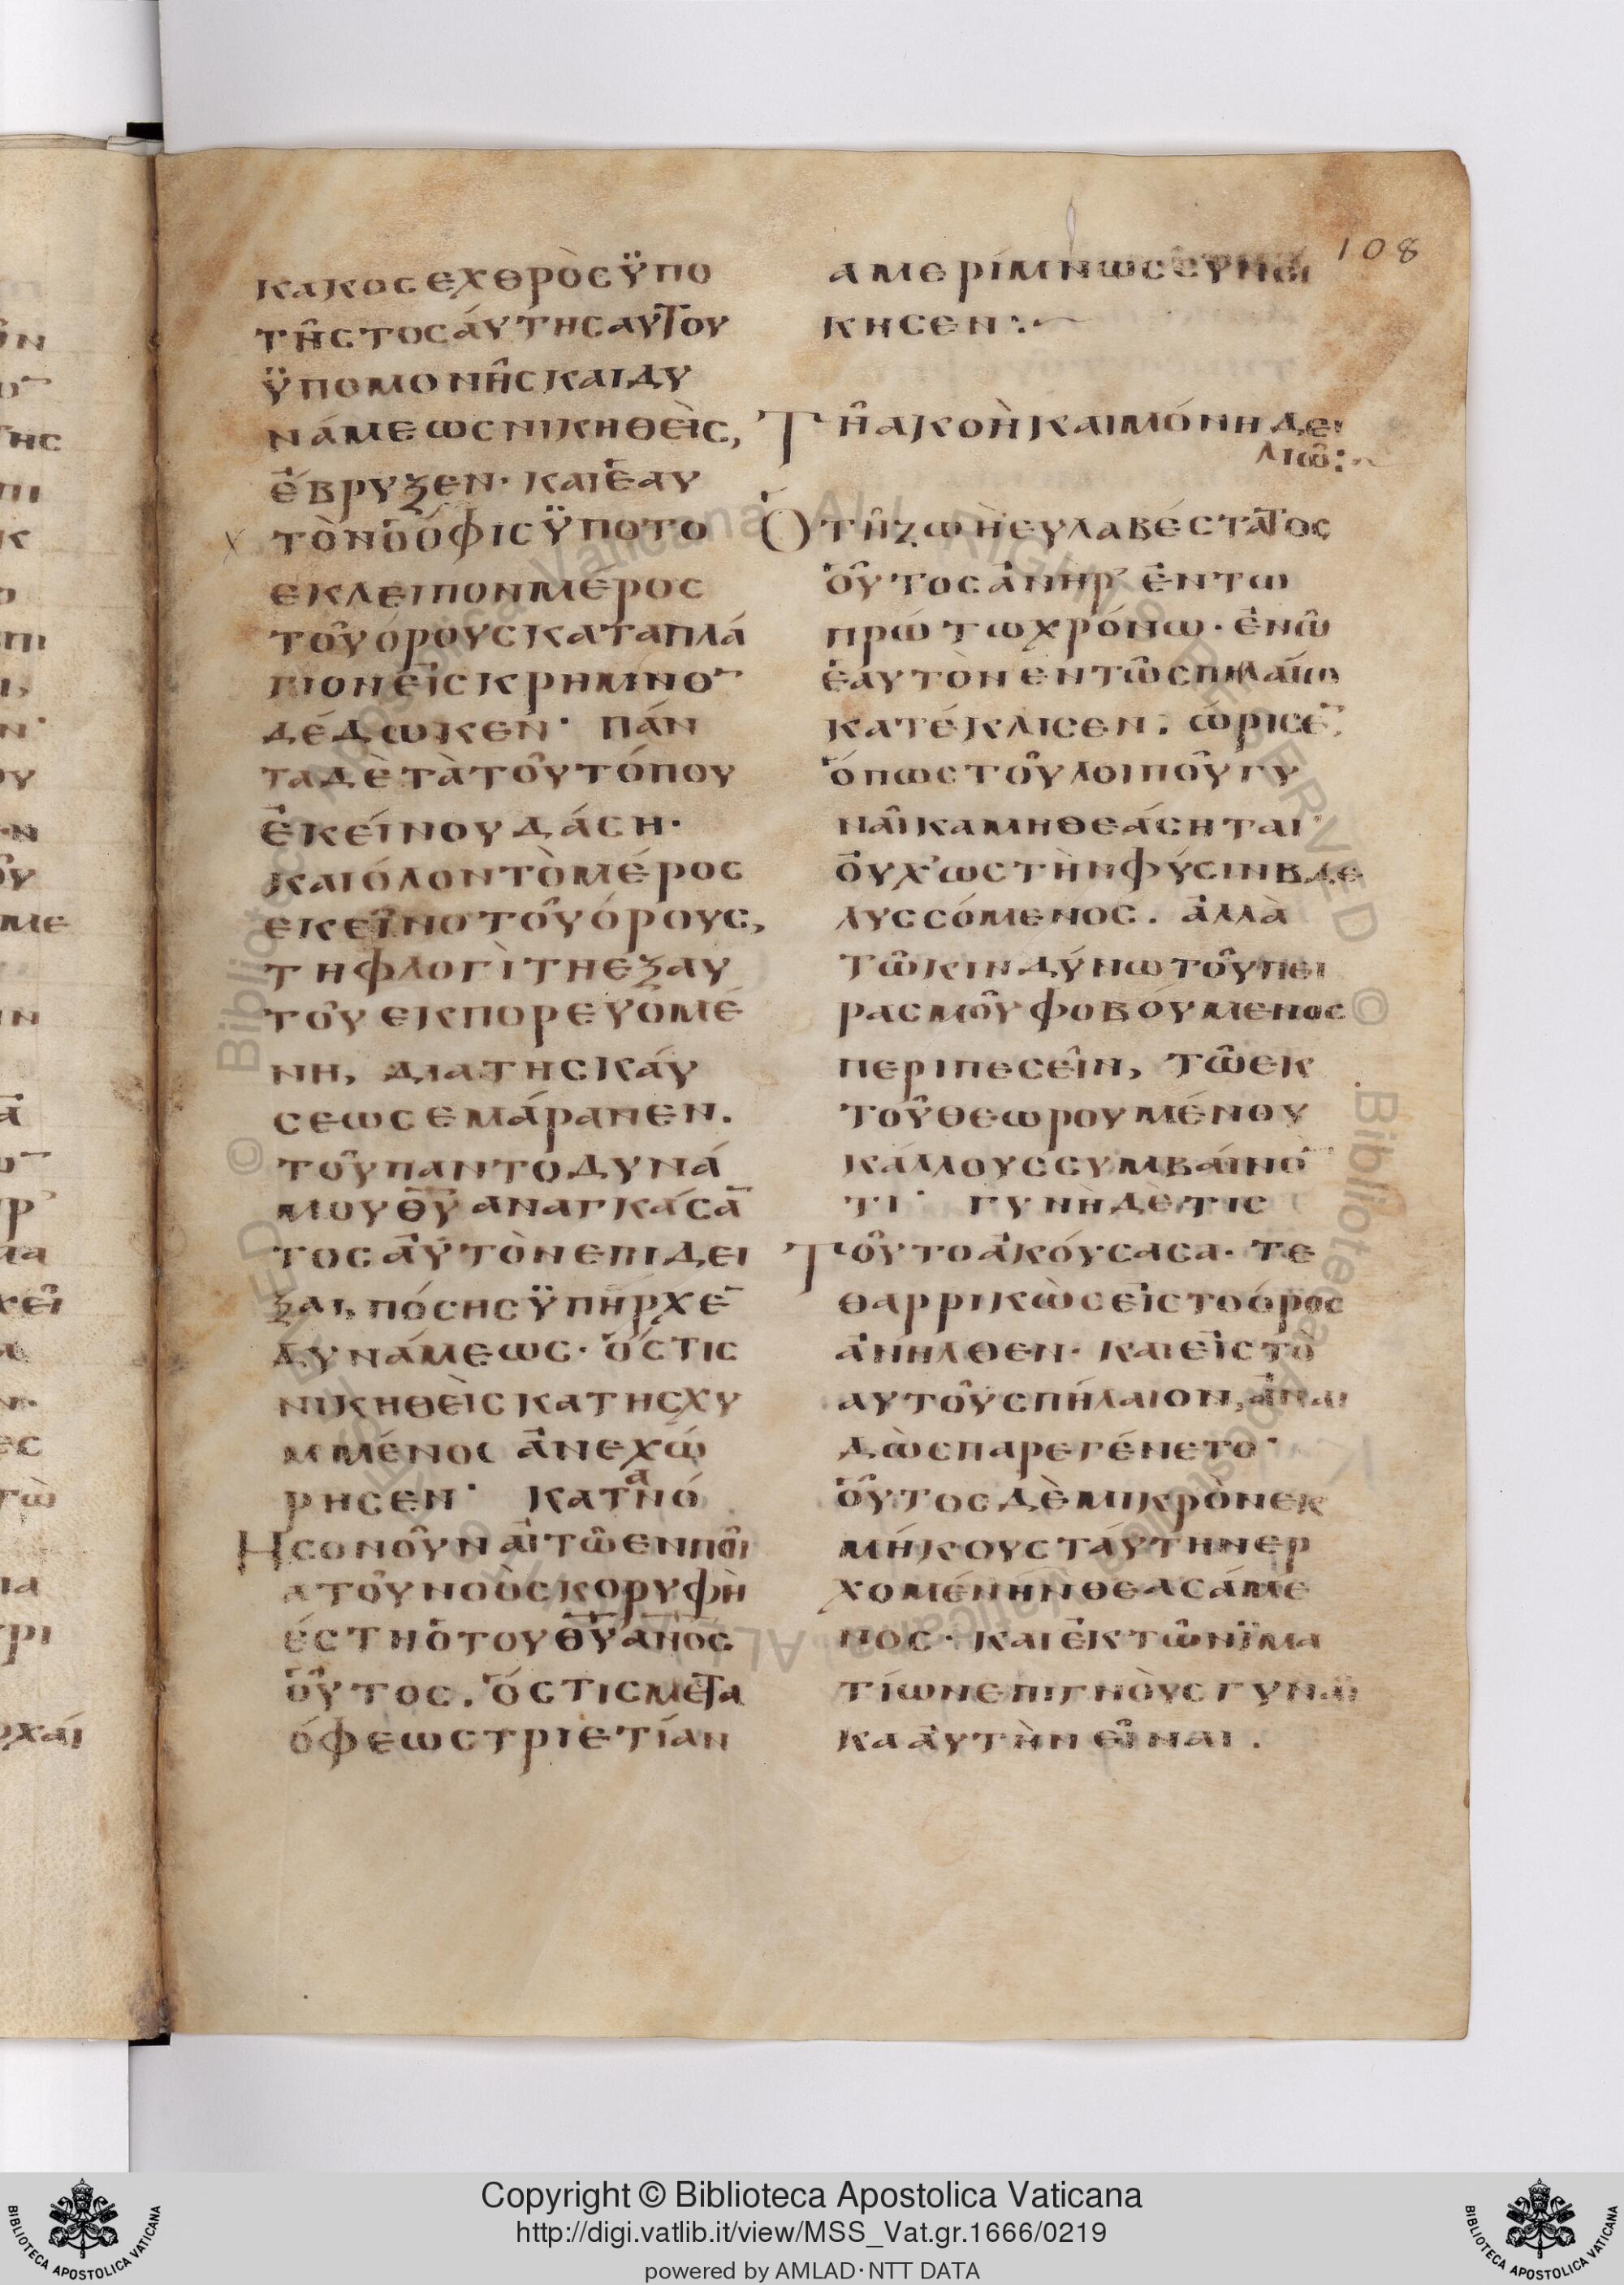 108
κακοσεχθρὸςϋπο
τῆςτοσάυτηςαυτου
ϋπομονῆςκαιδυ
νάμεωςνικηθεὶς,
έβρυξεν· καιἑαυ
τὸνὁόφιςϋποτο
εκλειπονμέρος
τοῦόρουςκαταπλά
γιονεἰςκρημνο̅
δέδωκεν· πάν
ταδὲτὰτοῦτόπου
ἐκείνουδάση·
καιόλοντὸμέρος
εκεῖνοτοῦόρους,
τηφλογὶτηεξαυ
τοῦεκπορευομέ
νη, διατηςκάυ
σεωςεμάρανεν.
τοῦπαντοδυνά
μουθ̅υ̅αναγκάσα̅
τοςἀυτὸνεπιδει
ξαι, πόσηςϋπῆρχε̅
δυνάμεως· ὅςτις
νικηθεὶςκατησχυ
μμένος ἀνεχώ
ρησεν· κατανό
Ησονοῦναἰτῶενποῖ
ατοῦνοὸςκορυφὴ
έστηὁτουθ̅υ̅α̅ν̅ο̅ς̅
οὗτος. ὅςτιςμετα
όφεωςτριετίαν
αμερίμνωςσυνῴ
κησεν:~
Τῆακοὴκαιμόνηδει
λιῶ:~
Ὁτῆζωὴευλαβέστατος
οὗτοςἀνηρ ἐντω
πρώτωχρόνω· ἐνῶ
ἑαυτὸνεντῶσπηλαίω
κατέκλισεν. ώρισε̅,
ὅπωςτοῦλοιποῦγυ
ναῖκαμηθεάσηται·
ὀυχ'ωςτὴνφύσινβδε
λυσσόμενος. ἀλλὰ
τῶκινδύνωτοῦπει
ρασμοῦφοβούμενος
περιπεσεῖν, τῶεκ
τοῦθεωρουμένου
κάλλουςσυμβάινο̅
τι· γυνὴδὲτις
Τοῦτοἀκόυσασα· τε
θαρρικὼςεἰςτοόρος
ἀνῆλθεν· καιεἰςτὸ
αυτοῦσπήλαιον,ἀναι
δὼςπαρεγένετο·
οὗτοςδὲμικρὸνεκ
μήκουςτάυτηνερ
χομένηνθεασάμε
νος· καιἐκτῶνϊμα
τίωνεπιγνὸυςγυναῖ
κααυτὴνεἶναι.
Copyright © Biblioteca Apostolica Vaticana
http://digi.vatlib.it/view/MSS_Vat.gr.1666/0219
powered by AMLAD·NTT DATA